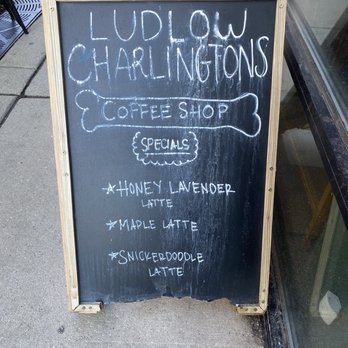 LUDLOW
CHARLINGTONS
COFFEE SHOP
SPECIALS
★HONEY LAVENDER
LATTE
★MAPLE LATTE
★SNICKERDOODLE
LATTE